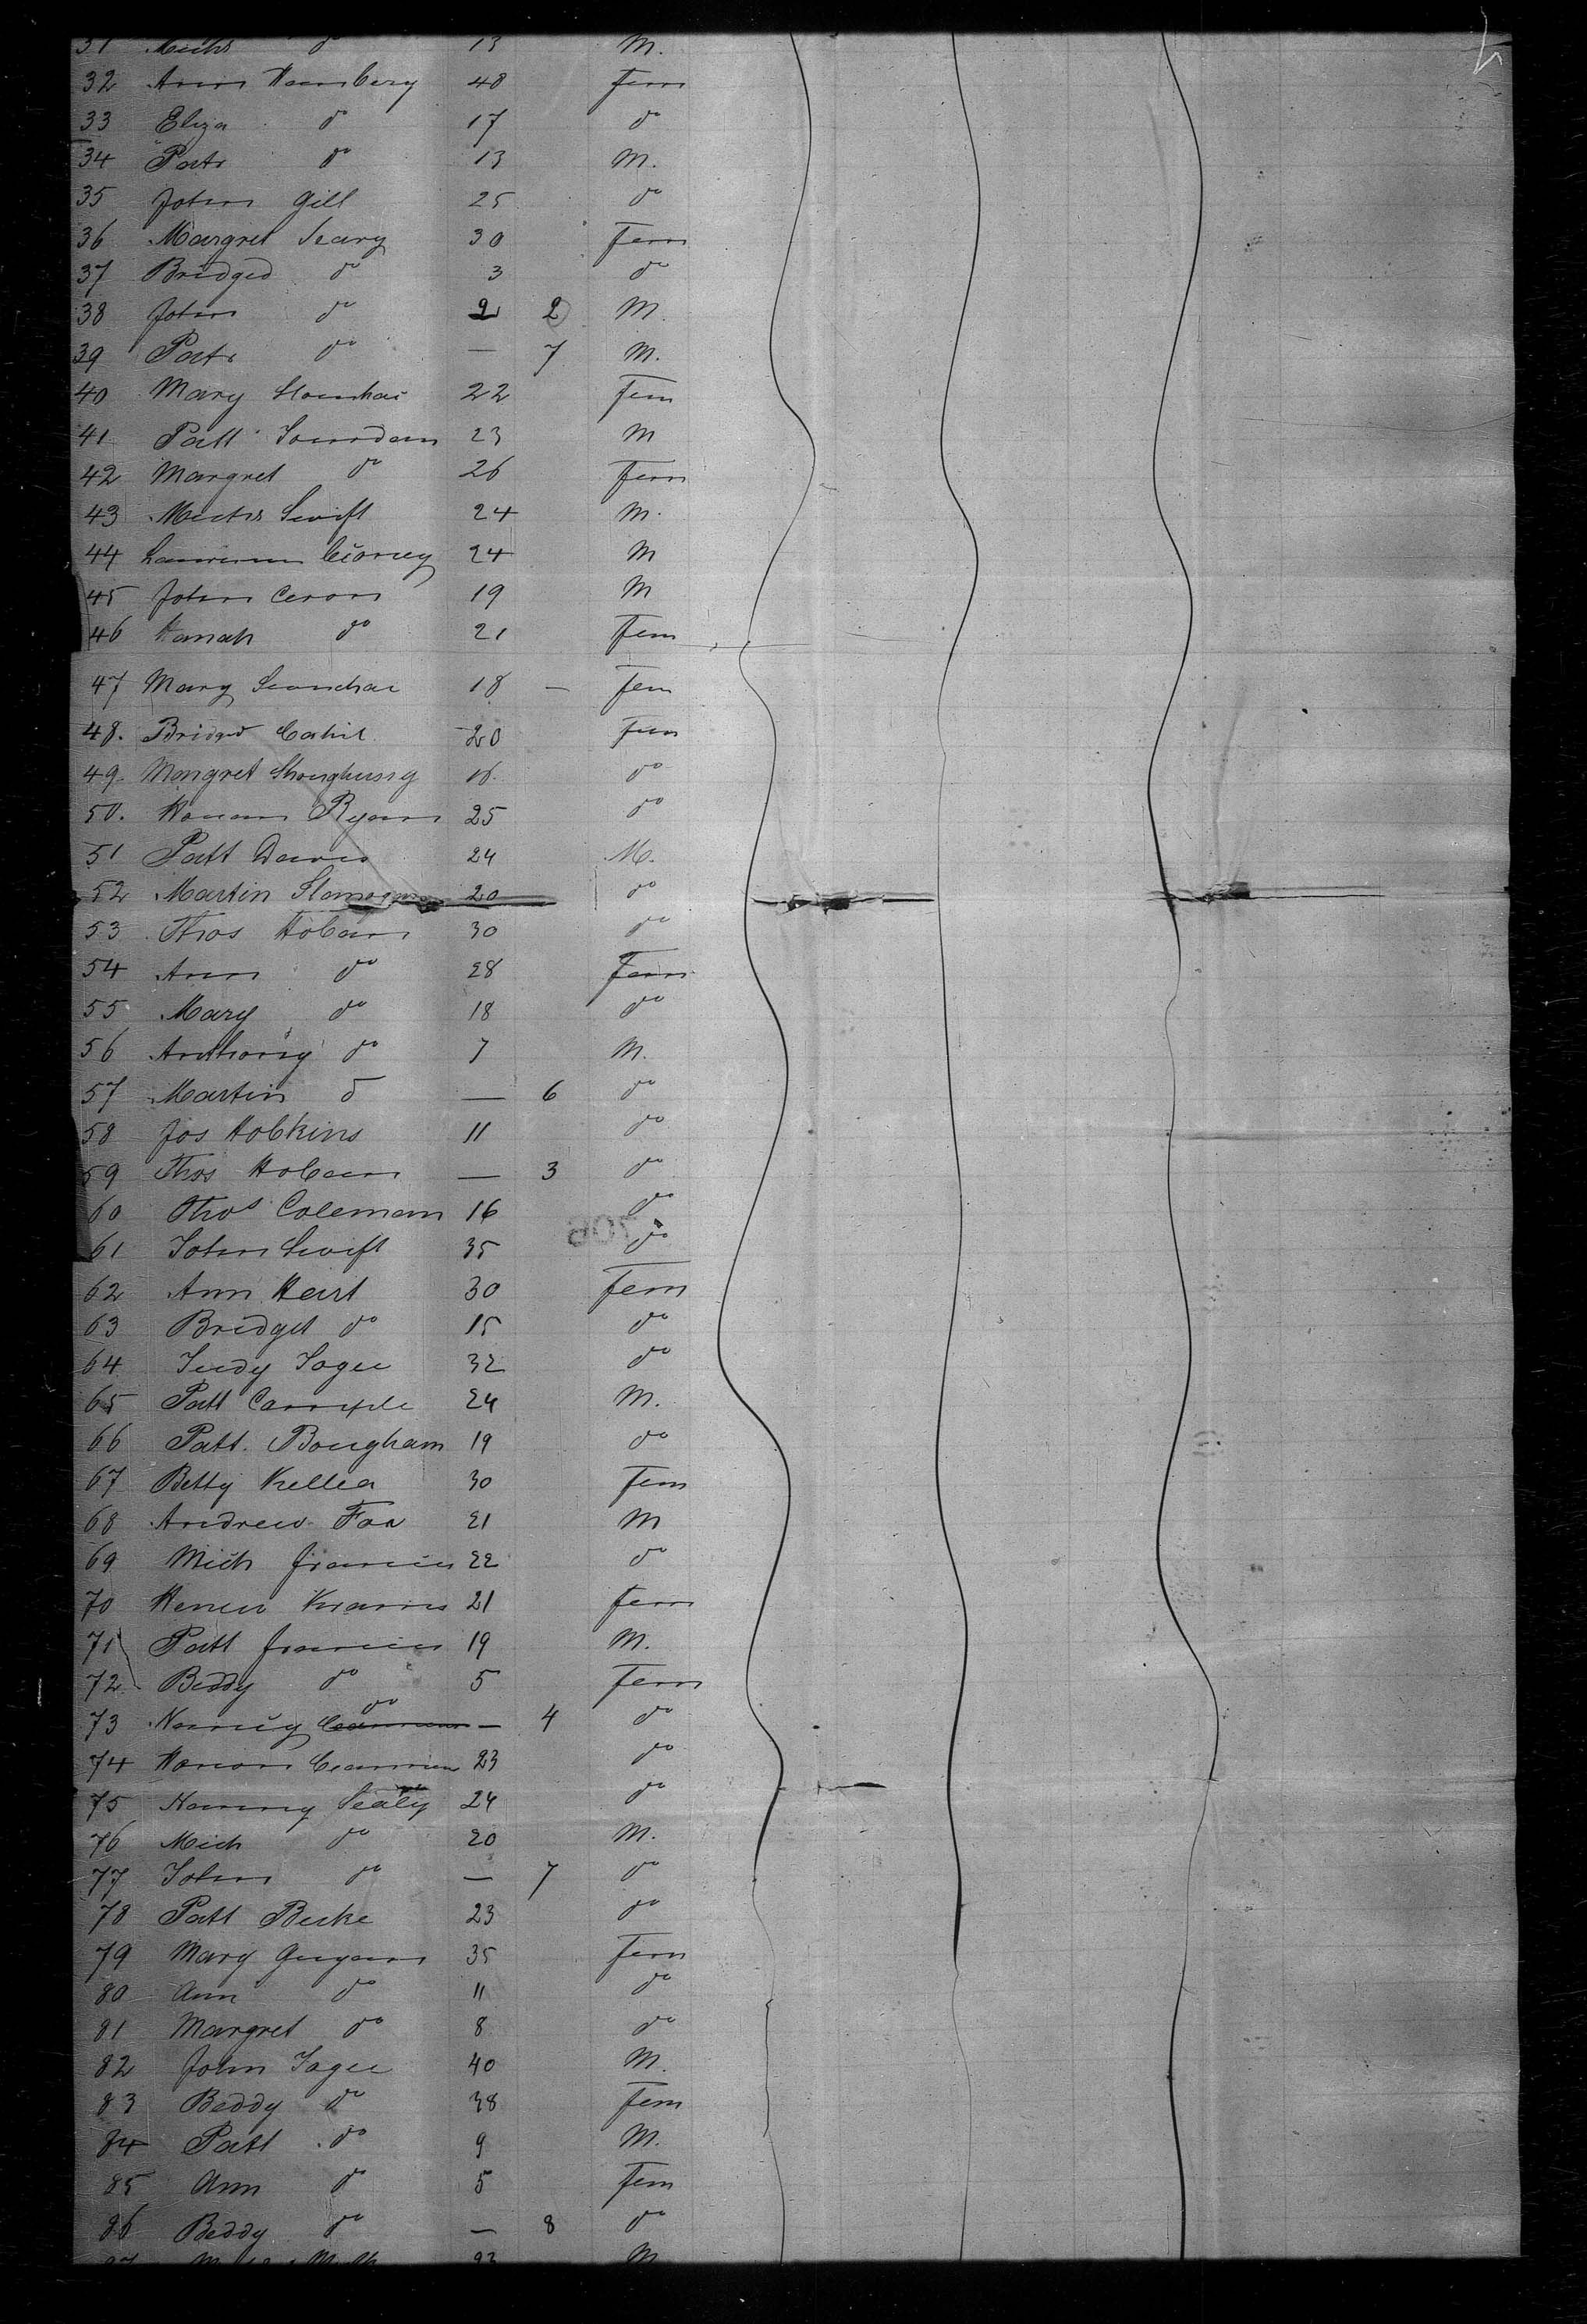 31 Michs do 13 M.
32 Ann Hamberry 40 Fem
33 Eliza do 17 do
34 Patr do 13 M.
35 John Gill 25 do
36 Margret Seary 30 Fem
37 Bridged do 3 do
38 John do 2 2 M.
39 Patr do — 7 M.
40 Mary 22 Fem
41 Patt Jourdan 23 M
42 Margret do 26 Fem
43 Michs Swift 24 M.
44 24 M
45 John Ceron 19 M
46 Hanah do 21 Fem
47 Mary 18 — Fem
48. Bridgd Cahil 20 Fem
49. Mongret 18. do
50. Ryan 25 do
51 Patt 24 M.
52 Martin 20 do
53 Thos Hoban 30 do
54 Ann do 28 Fem
55 Mary do 18 do
56 Anthony do 7 M.
57 Martin do — 6 do
58 Jos Hobkins 11 do
59 Thos Hoban — 3 do
60 Thos Coleman 16 do
61 John Swift 35 do
62 Ann Hart 30 Fem
63 Bridget do 15 do
64 Judy Jogee 32 do
65 Patt 24 M.
66 Patt. Bougham 19 do
67 Betty Kellea 30 Fem
68 Andrew Fox 21 M
69 Mich Francis 22 do
70 21 Fem
71 Patt Francis 19 M.
72 Beddy do 5 Fem
73 do — 4 do
74 Honor 23 do
75 Nanny Sealy 24 do
76 Mich do 20 M.
77 John do — 7 do
78 Patt Burke 23 do
79 Mary Guyan 35 Fem
80 Ann do 11 do
81 Margret do 8 do
82 John Jogee 40 M.
83 Beddy do 38 Fem
84 Patt do 9 M.
85 Ann do 5 Fem
86 Beddy do — 8 do
87 23 M